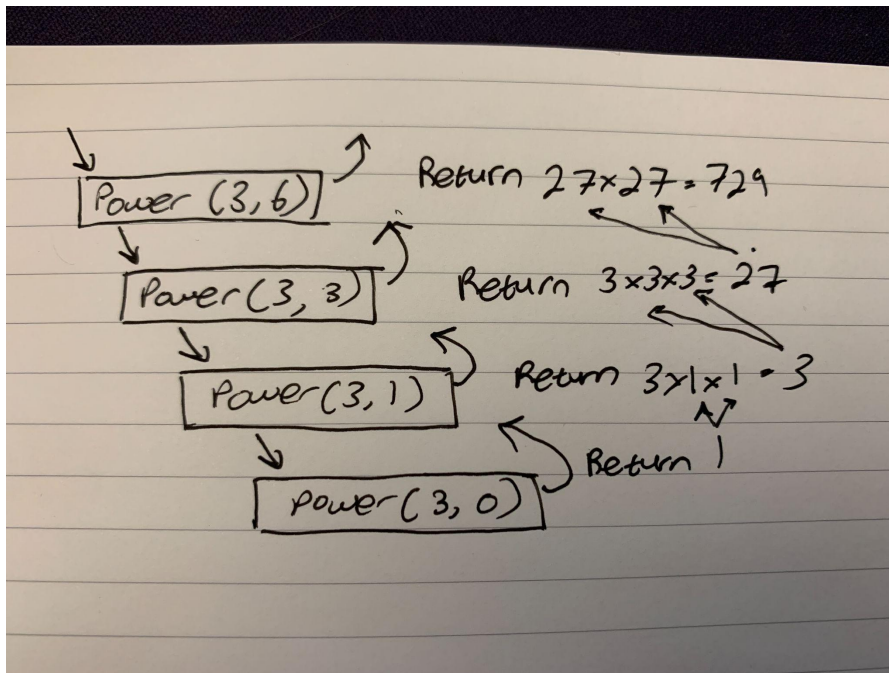 Power (3, 6) Return 27×27 = 729
Power (3, 3) Return 3×3×3 = 27
Power (3, 1) Return 3×1×1 = 3
Return 1
Power (3, 0)